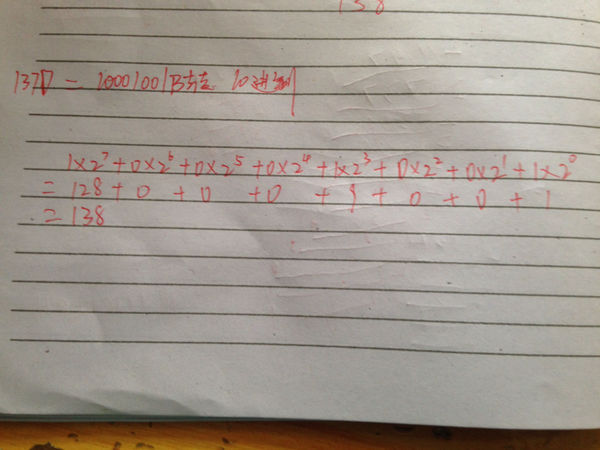 138
137D = 10001001B转 10进制
1×2⁷+0×2⁶+0×2⁵+0×2⁴+1×2³+0×2²+0×2¹+1×2⁰
=128+0+0+0+9+0+0+1
=138